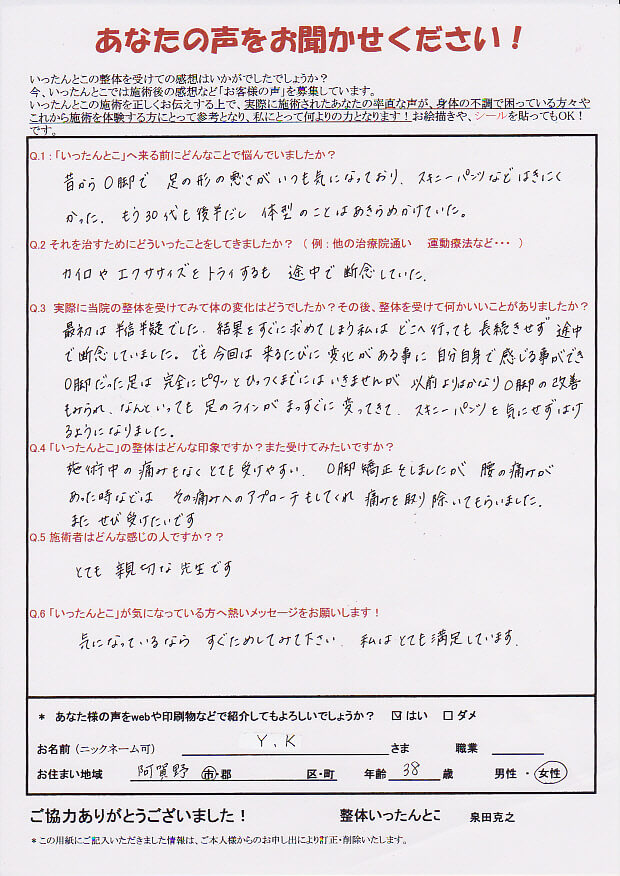 あなたの声をお聞かせください！
いったんとこの整体を受けての感想はいかがでしたでしょうか？
今、いったんとこでは施術後の感想など「お客様の声」を募集しています。
いったんとこの施術を正しくお伝えする上で、実際に施術されたあなたの率直な声が、身体の不調で困っている方々や
これから施術を体験する方にとって参考となり、私にとって何よりの力となります！お絵描きや、シールを貼ってもOK！
です。
Q.1：「いったんとこ」へ来る前にどんなことで悩んでいましたか？
昔から O脚で 足の形の悪さがいつも気になっており、スキニーパンツなどはきにく
かった。もう30代も後半だし 体型のことはあきらめかけていた。
Q.2 それを治すためにどういったことをしてきましたか？（例：他の治療院通い 運動療法など・・・ ）
カイロや エクササイズをトライするも 途中で断念していた。
Q.3 実際に当院の整体を受けてみて体の変化はどうでしたか？その後、整体を受けて何かいいことがありましたか？
最初は半信半疑でした。結果をすぐに求めてしまう私は どこへ行っても長続きせず 途中
で断念していました。でも今回は 来るたびに 変化がある事に 自分自身で感じる事ができ
O脚だった足は 完全にピタッとひっつくまでにはいきませんが 以前よりはかなりO脚の改善
もみられ、なんといっても 足のラインが まっすぐに変ってきて、スキニーパンツを気にせずはけ
るようになりました。
Q.4「いったんとこ」の整体はどんな印象ですか？また受けてみたいですか？
施術中の痛みもなく とても受けやすい。O脚矯正をしましたが 腰の痛みが
あった時などは その痛みへのアプローチもしてくれ 痛みを取り除いてもらいました。
また ぜひ受けたいです
Q.5 施術者はどんな感じの人ですか？？
とても 親切な先生です
Q.6「いったんとこ」が気になっている方へ熱いメッセージをお願いします！
気になっているなら すぐためしてみて下さい。私はとても満足しています。
* あなた様の声をwebや印刷物などで紹介してもよろしいでしょうか？ ☑はい □ダメ
お名前（ニックネーム可） Y.K さま 職業
お住まい地域 阿賀野 市・郡 区・町 年齢 38 歳 男性・女性
ご協力ありがとうございました！ 整体いったんとこ 泉田克之
*この用紙にご記入いただきました情報は、ご本人様からのお申し出により訂正・削除いたします。